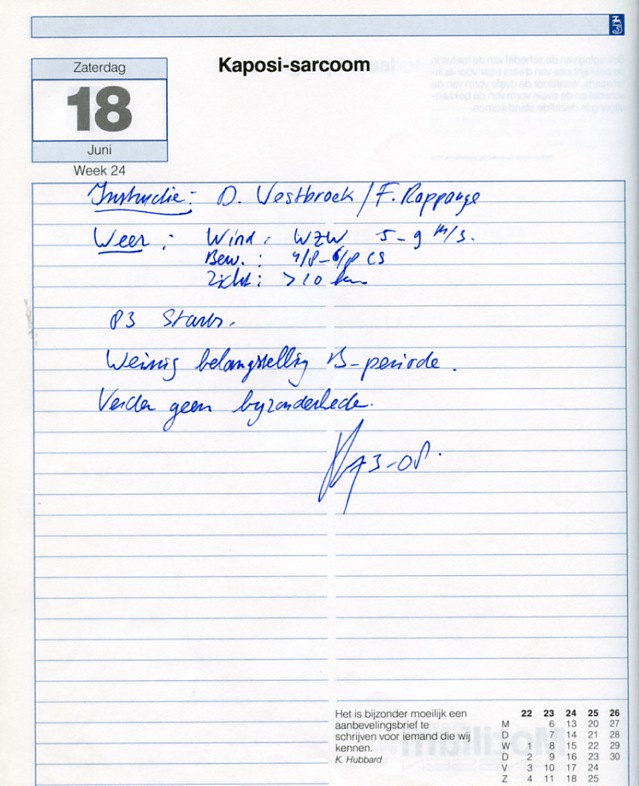 Kaposi-sarcoom
Zaterdag
18
Juni
Week 24
Instructie: D. Westbroek / F. Rappange
Weer: Wind: WZW 5-9 m/s.
Bew.: 4/8-6/8 CS
Zicht: >10 km
83 Starts.
Weinig belangstelling B-periode.
Verder geen byzonderheden.
Het is bijzonder moeilijk een
aanbevelingsbrief te
schrijven voor iemand die wij
kennen.
K. Hubbard
22 23 24 25 26
M 6 13 20 27
D 7 14 21 28
W 1 8 15 22 29
D 2 9 16 23 30
V 3 10 17 24
Z 4 11 18 25